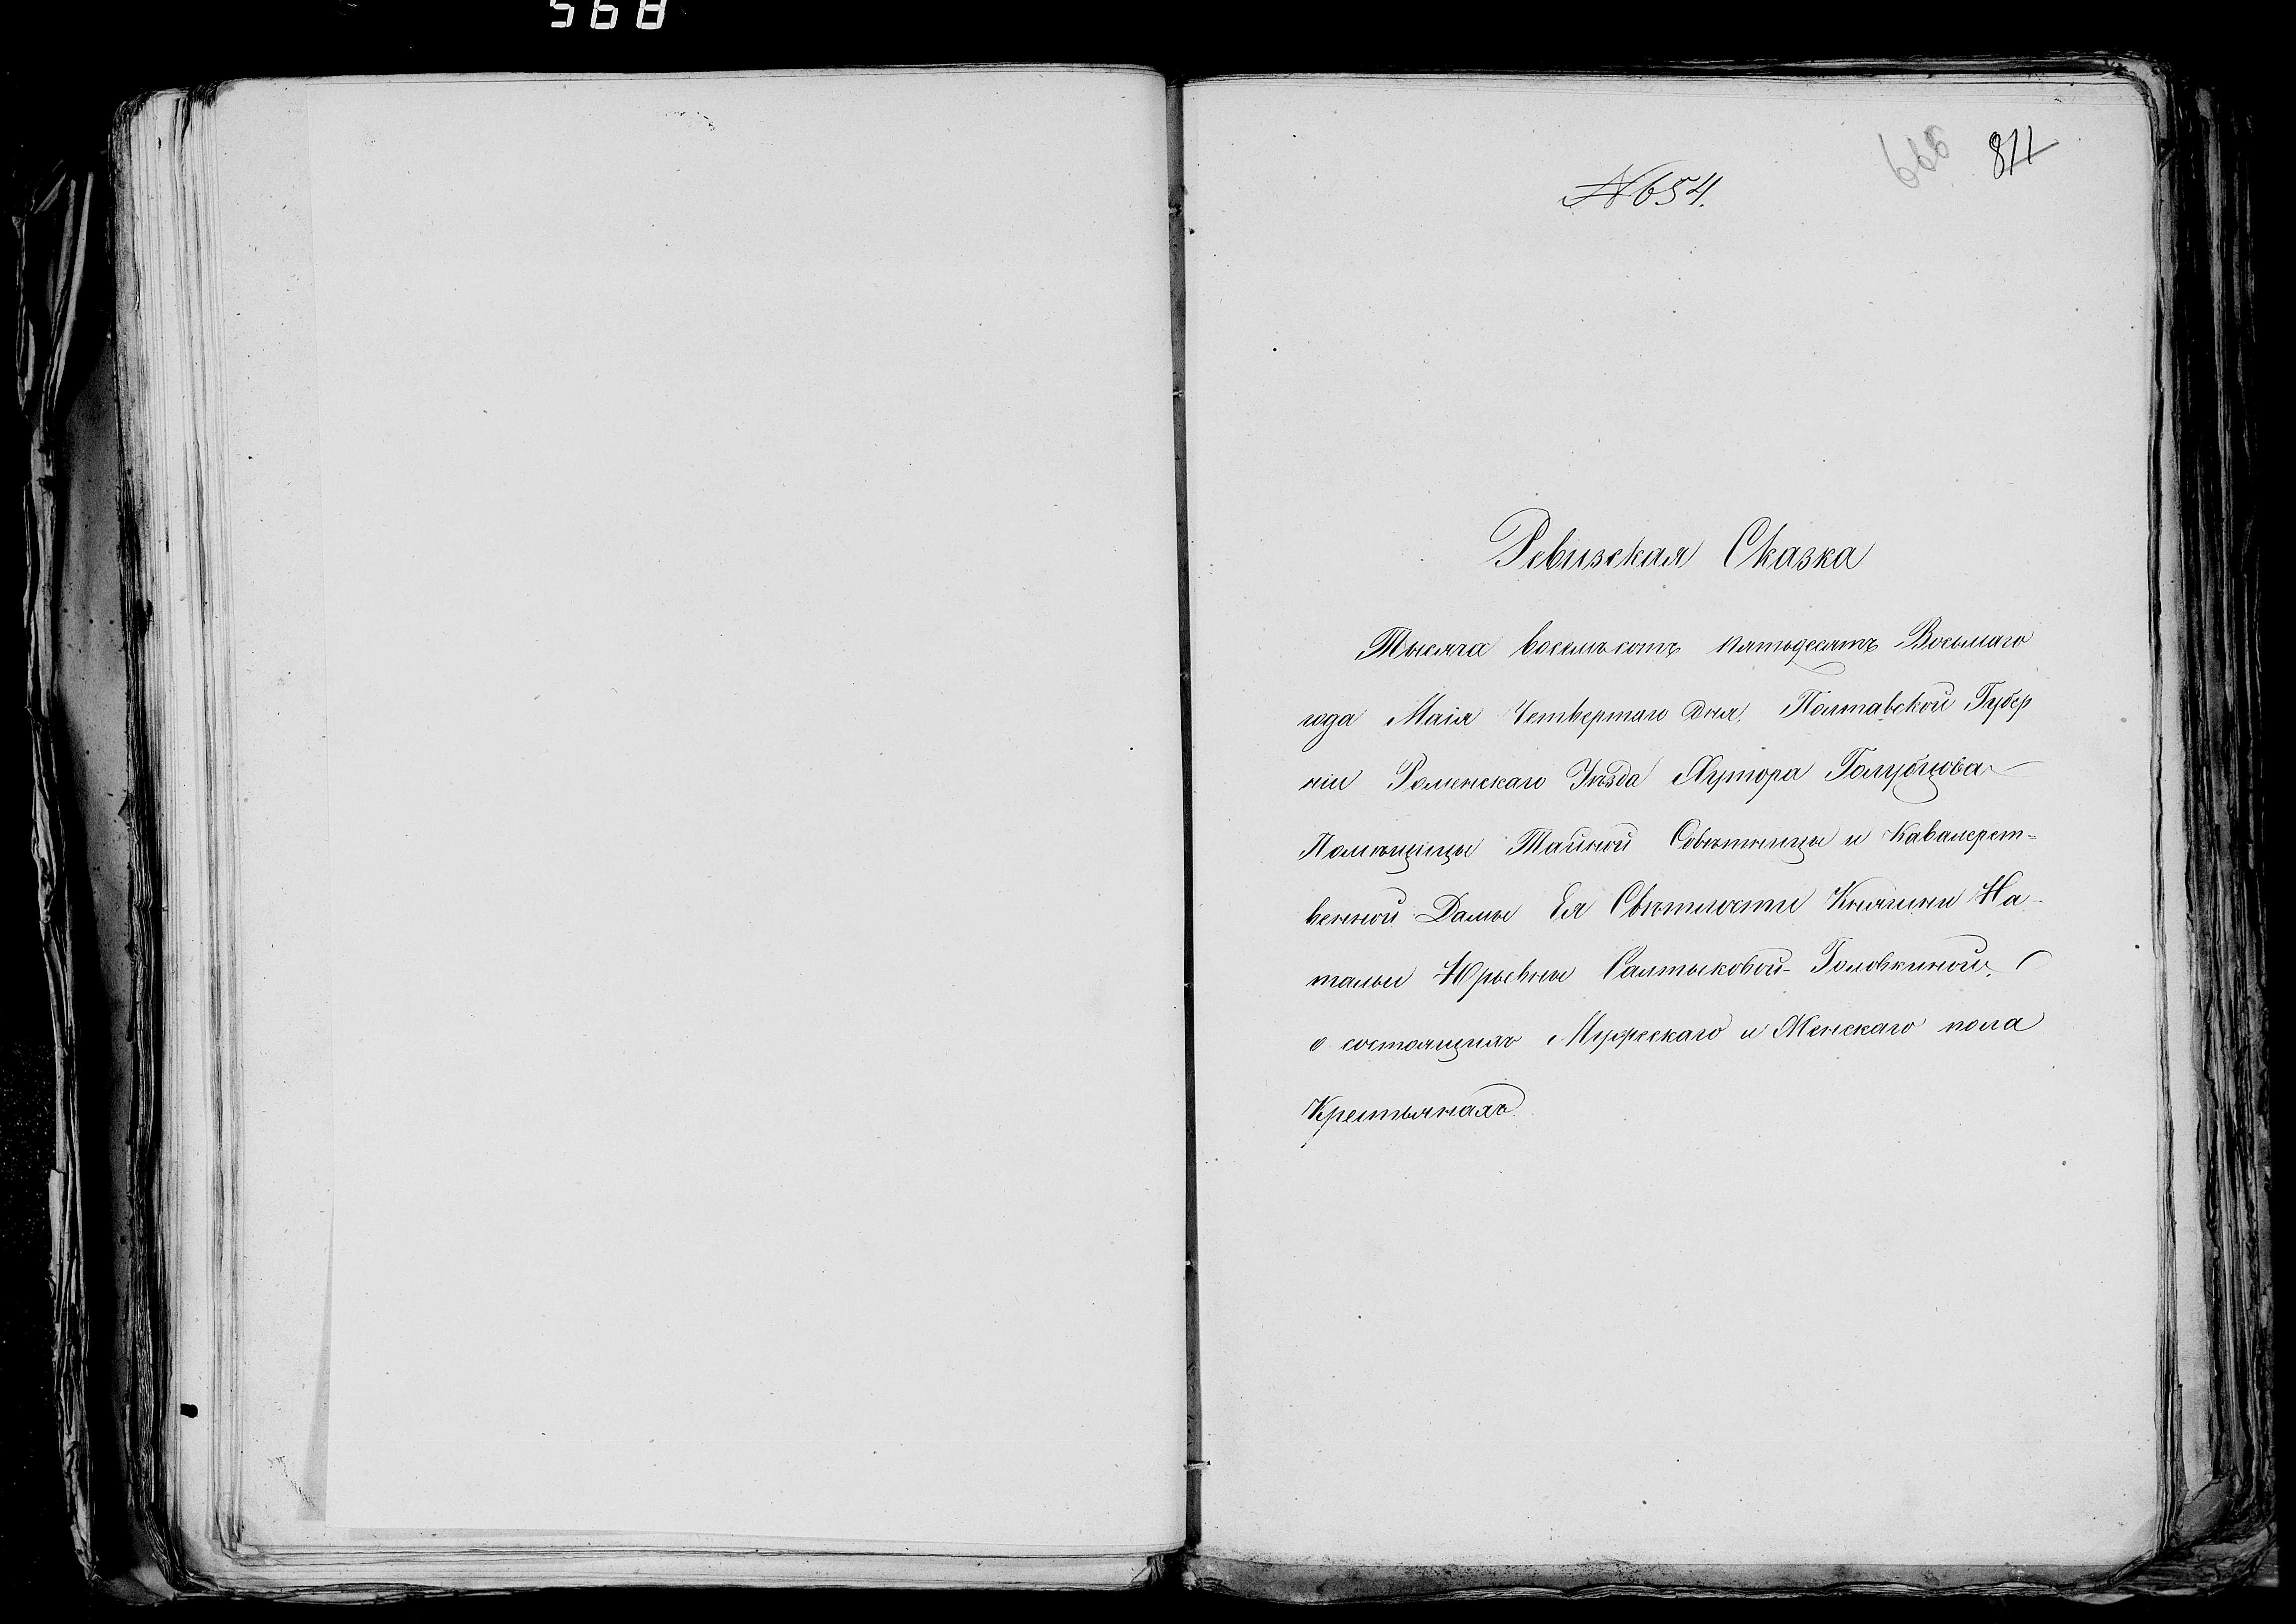 568
666 811
№ 654.
Ревизская Сказка
Тысяча восемъсотъ пятьдесятъ Восьмаго
года Маія Четвертаго дня, Полтавской Губер
ніи Роменскаго Уѣзда Хутора Голубцова
Помѣщицы Тайной Совѣтницы и Кавалерст-
венной Дамы Ея Свѣтлости Княгини На-
тальи Юрьевны Салтыковой-Головкиной,
о состоящихъ Мужескаго и Женскаго пола
Крестьянахъ.